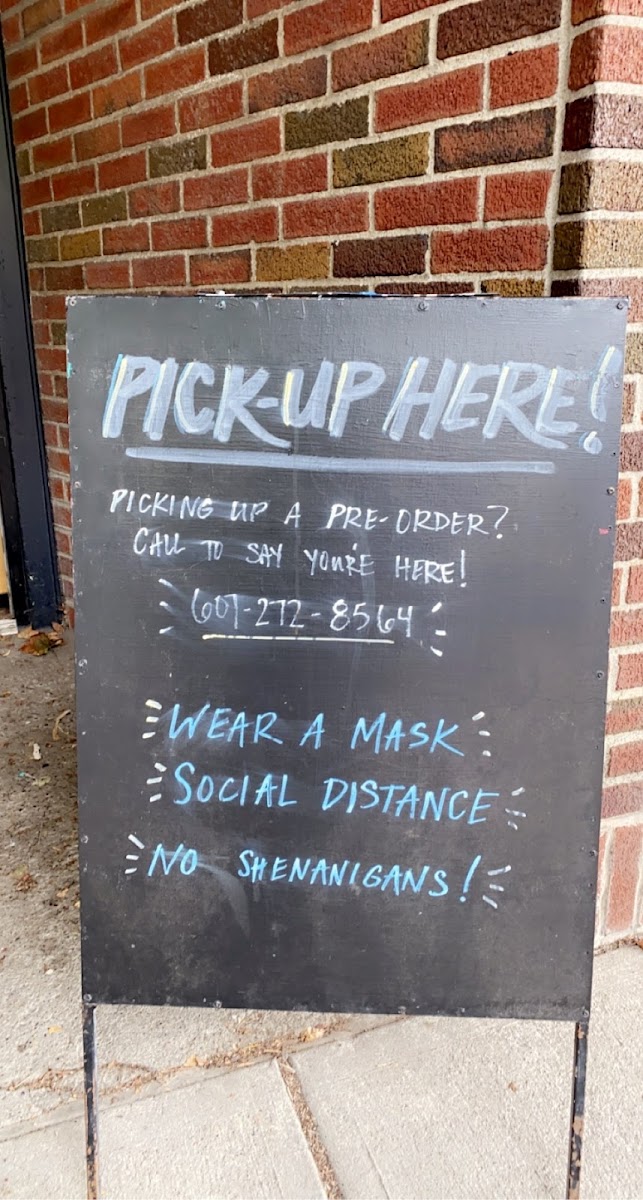 PICK-UP HERE!
PICKING UP A PRE-ORDER?
CALL TO SAY YOU'RE HERE!
607-272-8564
WEAR A MASK
SOCIAL DISTANCE
NO SHENANIGANS!